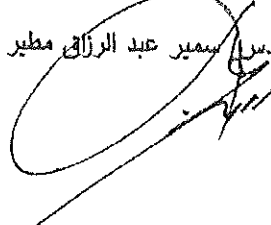 سمير عبد الرزاق مطير